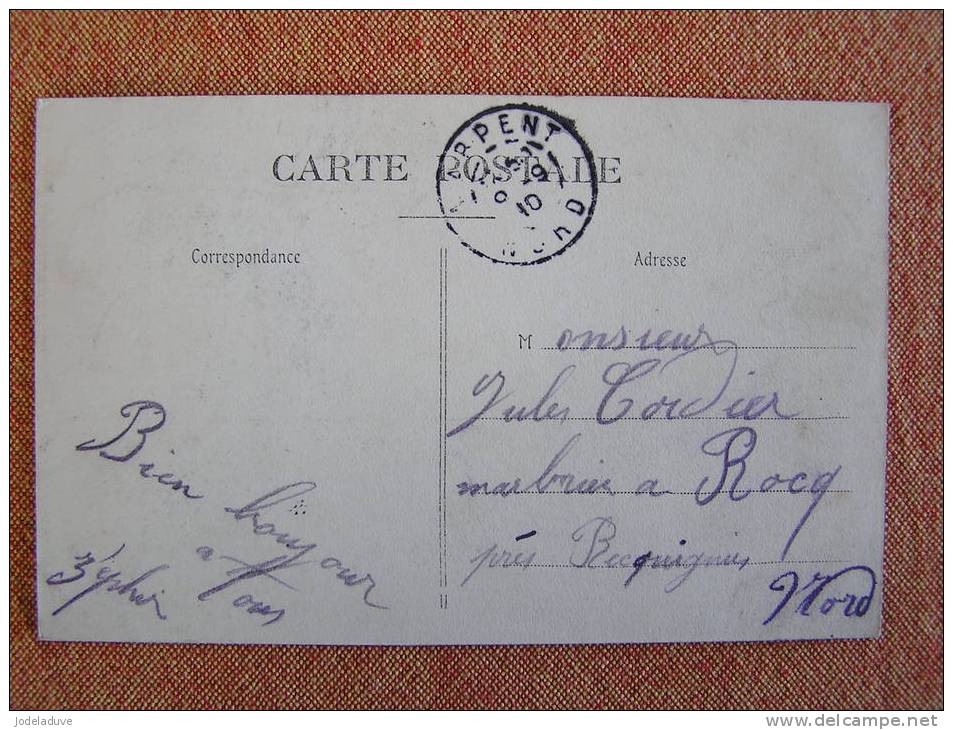 CARTE POSTALE
ARPENT
NORD
Correspondance
Adresse
Monsieur
Jules Cordier
marbrier a Rocq
près Recquignies
Nord
Bien bonjour
a tous
Zéphir
Jodeladuve
www.delcampe.net